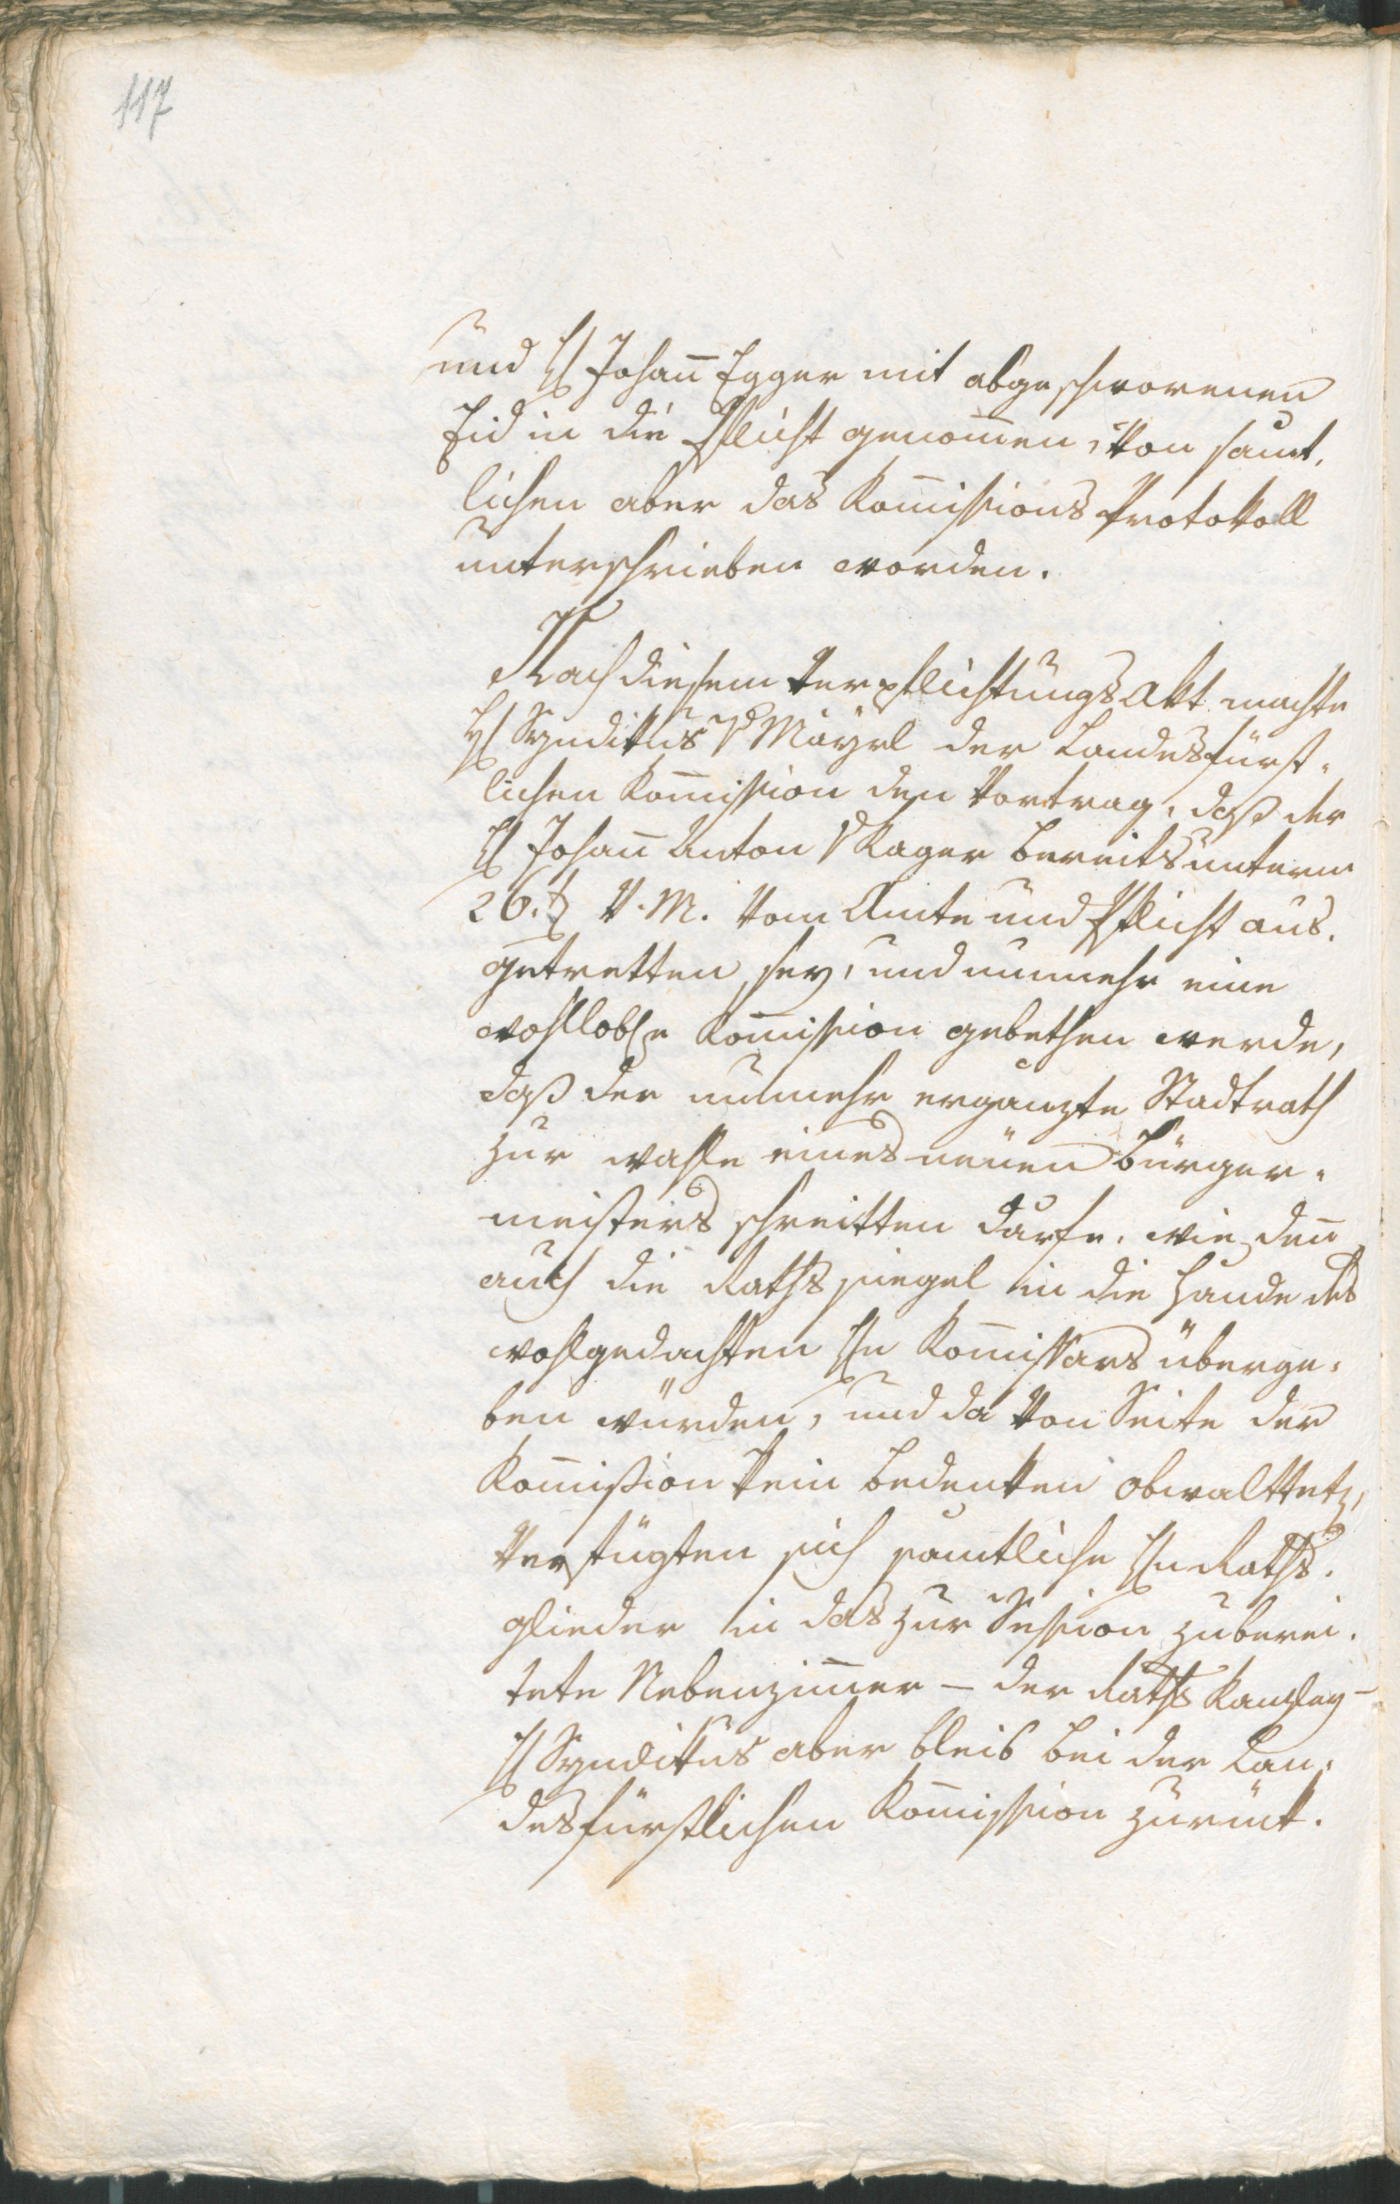 117
und H. Johan̄ Egger mit abgeschworenen
Eid in die Pflicht genom̄en, von samt,
lichen aber das Kom̄issions Protokoll
unterschrieben worden.
Nach diesem Verpflichtungs Akt machte
H. Syndikus v Mayrl der Landesfürst-
lichen Kom̄ission den Vortrag, daß der
H. Johan̄ Anton v Kager bereits unterm
26.t v. M. vom Amte und Pflicht aus,
getretten sey, und nunmehr eine
wohllobe Kom̄ission gebethen werde,
daß der nunmehr ergänzte Stadtrath
zur wahle eines neuen Bürger-
meisters schreitten darfe, wie den̄
auch die Raths siegel in die Hände des
wohlgedachten Hn Kom̄issärs überge-
ben würden, und da von Seite der
Kom̄ißion kein bedenken obwalttet,
verfügten sich samtliche Hn Raths,
glieder in das zur Session zuberei,
tete Nebenzim̄er — der Raths Kanzley —
H. Syndikus aber bleib bei der Lan,
desfürstlichen Kom̄ission zurück.